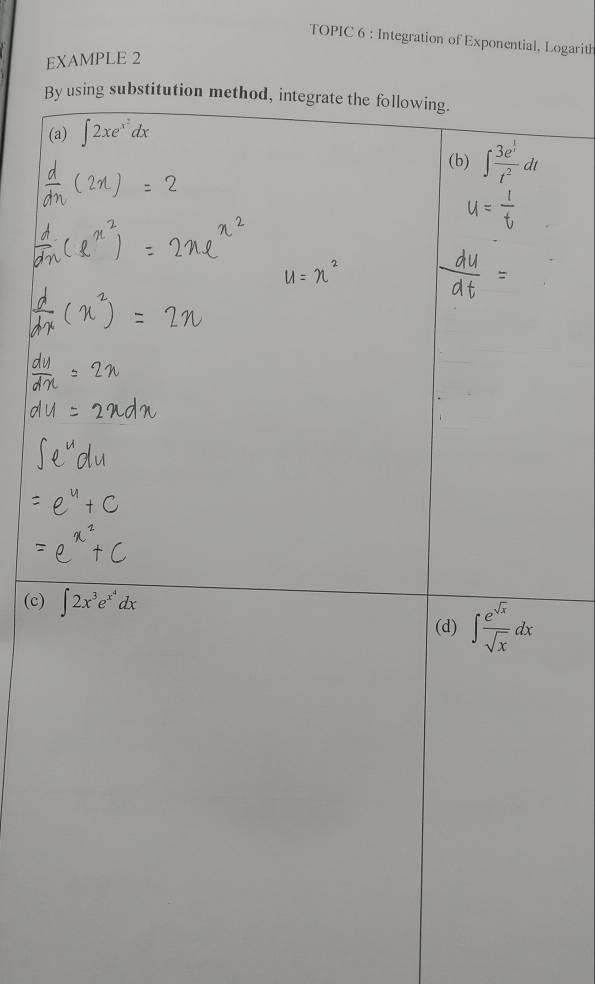 TOPIC 6 : Integration of Exponential, Logarith
EXAMPLE 2
By using substitution method, integrate the following.
(a) ∫ 2xe^{x^2} dx
d/dx (2x) = 2
d/dx (e^{x^2}) = 2xe^{x^2}
u = x^2
d/dx (x^2) = 2x
du/dx = 2x
du = 2xdx
∫e^u du
= e^u + C
= e^{x^2} + C
(b) ∫ 3e^{1/t}/t^2 dt
u = 1/t
du/dt =
(c) ∫ 2x^3 e^{x^4} dx
(d) ∫ e^{√x}/√x dx